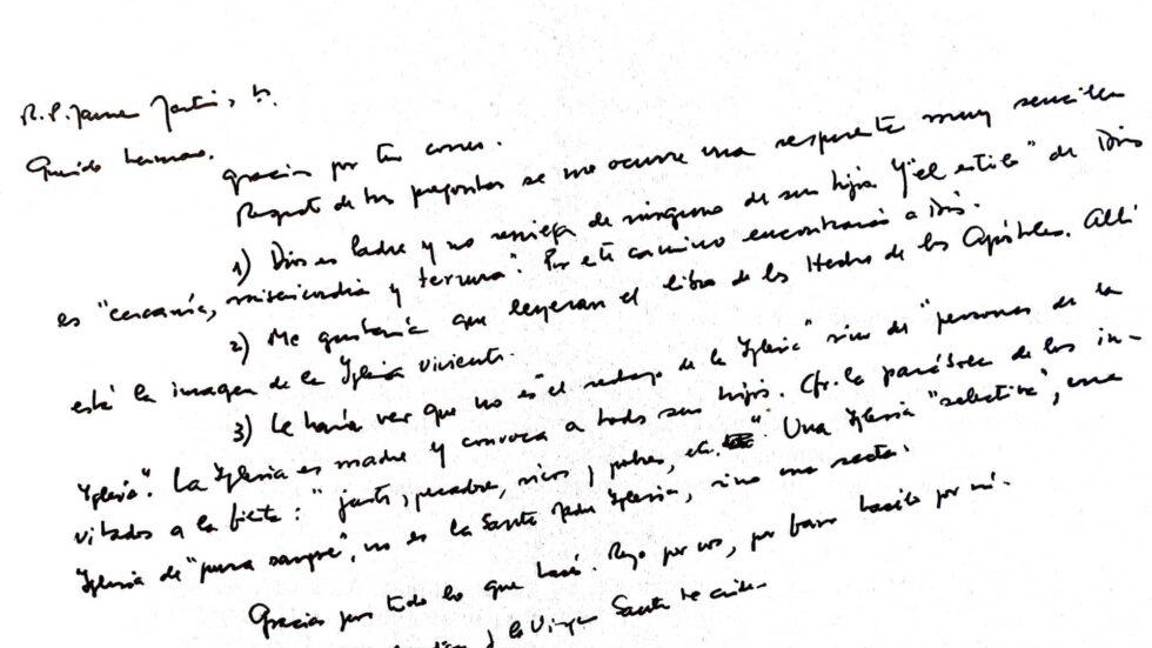 R.P. James Martin, sj.
Querido hermano,
gracias por tu correo.
Respecto de tus preguntas se me ocurre una respuesta muy sencilla
1) Dios es Padre y no reniega de ninguno de sus hijos. Y "el estilo" de Dios
es "cercanía, misericordia y ternura". Por este camino encontrarás a Dios.
2) Me gustaría que leyeran el libro de los Hechos de los Apóstoles. Allí
está la imagen de la Iglesia viviente.
3) Le haría ver que no es "el rechazo de la Iglesia" sino de "personas de la
Iglesia". La Iglesia es madre y convoca a todos sus hijos. Cfr. la parábola de los in-
vitados a la fiesta: "justos, pecadores, ricos y pobres, etc. ". Una Iglesia "selectiva", una
Iglesia de "pura sangre", no es la Santa Madre Iglesia, sino una secta.
Gracias por todo lo que hacés. Rezo por vos, por favor hacelo por mí.
y la Virgen Santa te cuide.